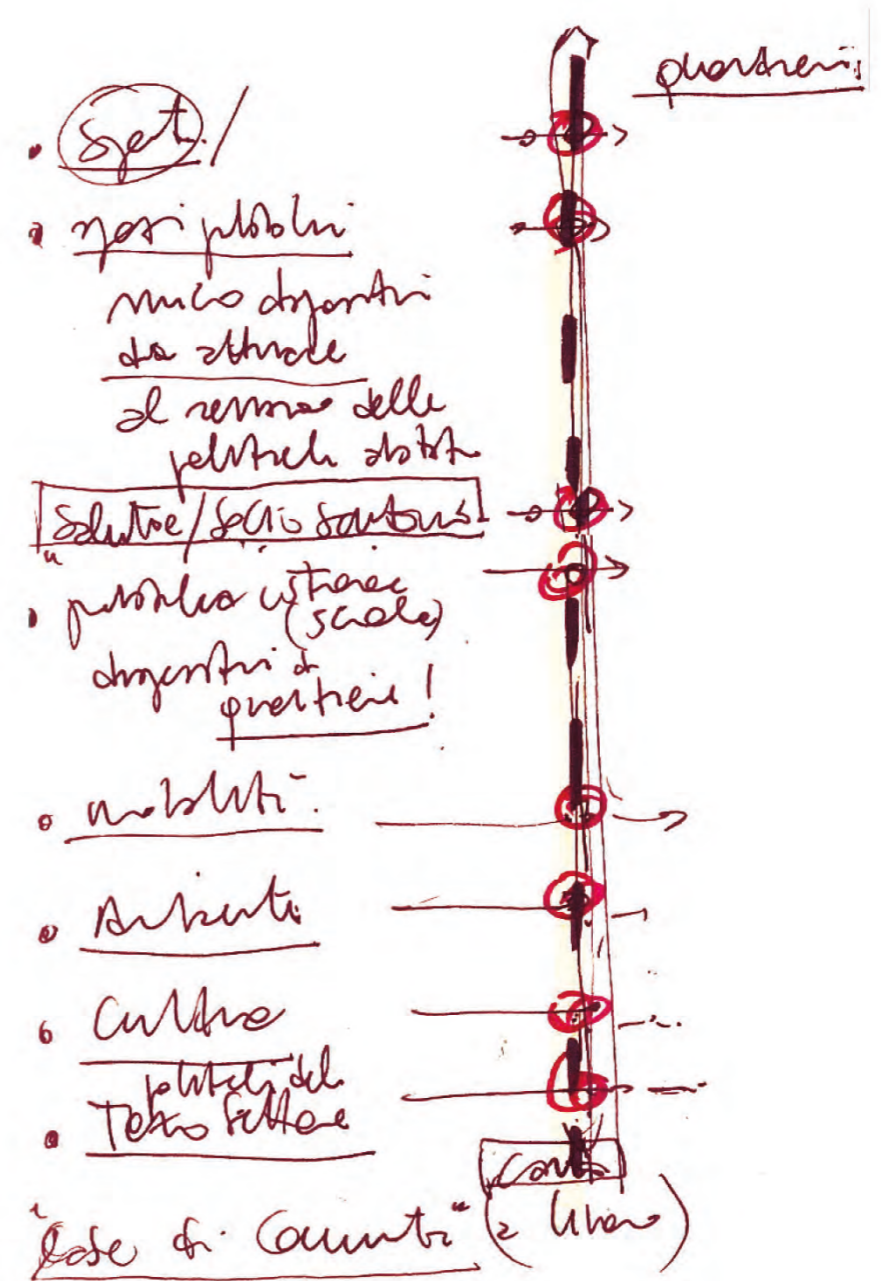 quartieri
• Sport /
• spazi pubblici
nuovi dispositivi
da attivare
al servizio delle
politiche abitat
Salute / Socio Sanitario
• pubblica istruzione
(scuola)
dispositivi di
quartiere !
• mobilità
• Ambiente
• Cultura
politiche del
• Terzo Settore
"Case di Comunità"